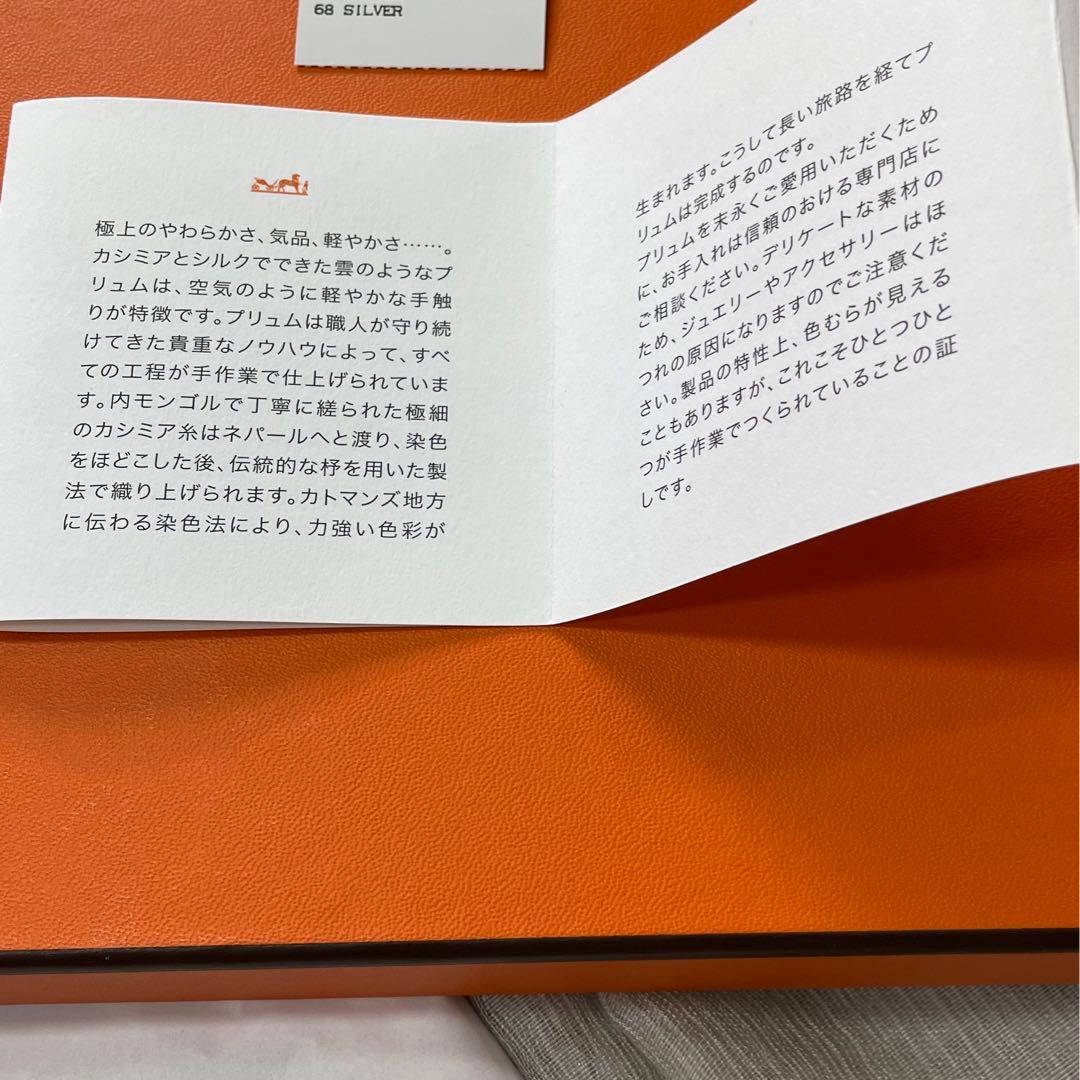 68 SILVER
極上のやわらかさ、気品、軽やかさ……。
カシミアとシルクでできた雲のようなプ
リュムは、空気のように軽やかな手触
りが特徴です。プリュムは職人が守り続
けてきた貴重なノウハウによって、すべ
ての工程が手作業で仕上げられていま
す。内モンゴルで丁寧に縒られた極細
のカシミア糸はネパールへと渡り、染色
をほどこした後、伝統的な杼を用いた製
法で織り上げられます。カトマンズ地方
に伝わる染色法により、力強い色彩が
生まれます。こうして長い旅路を経てプ
リュムは完成するのです。
プリュムを末永くご愛用いただくため
に、お手入れは信頼のおける専門店に
ご相談ください。デリケートな素材の
ため、ジュエリーやアクセサリーはほ
つれの原因になりますのでご注意くだ
さい。製品の特性上、色むらが見える
こともありますが、これこそひとつひと
つが手作業でつくられていることの証
しです。